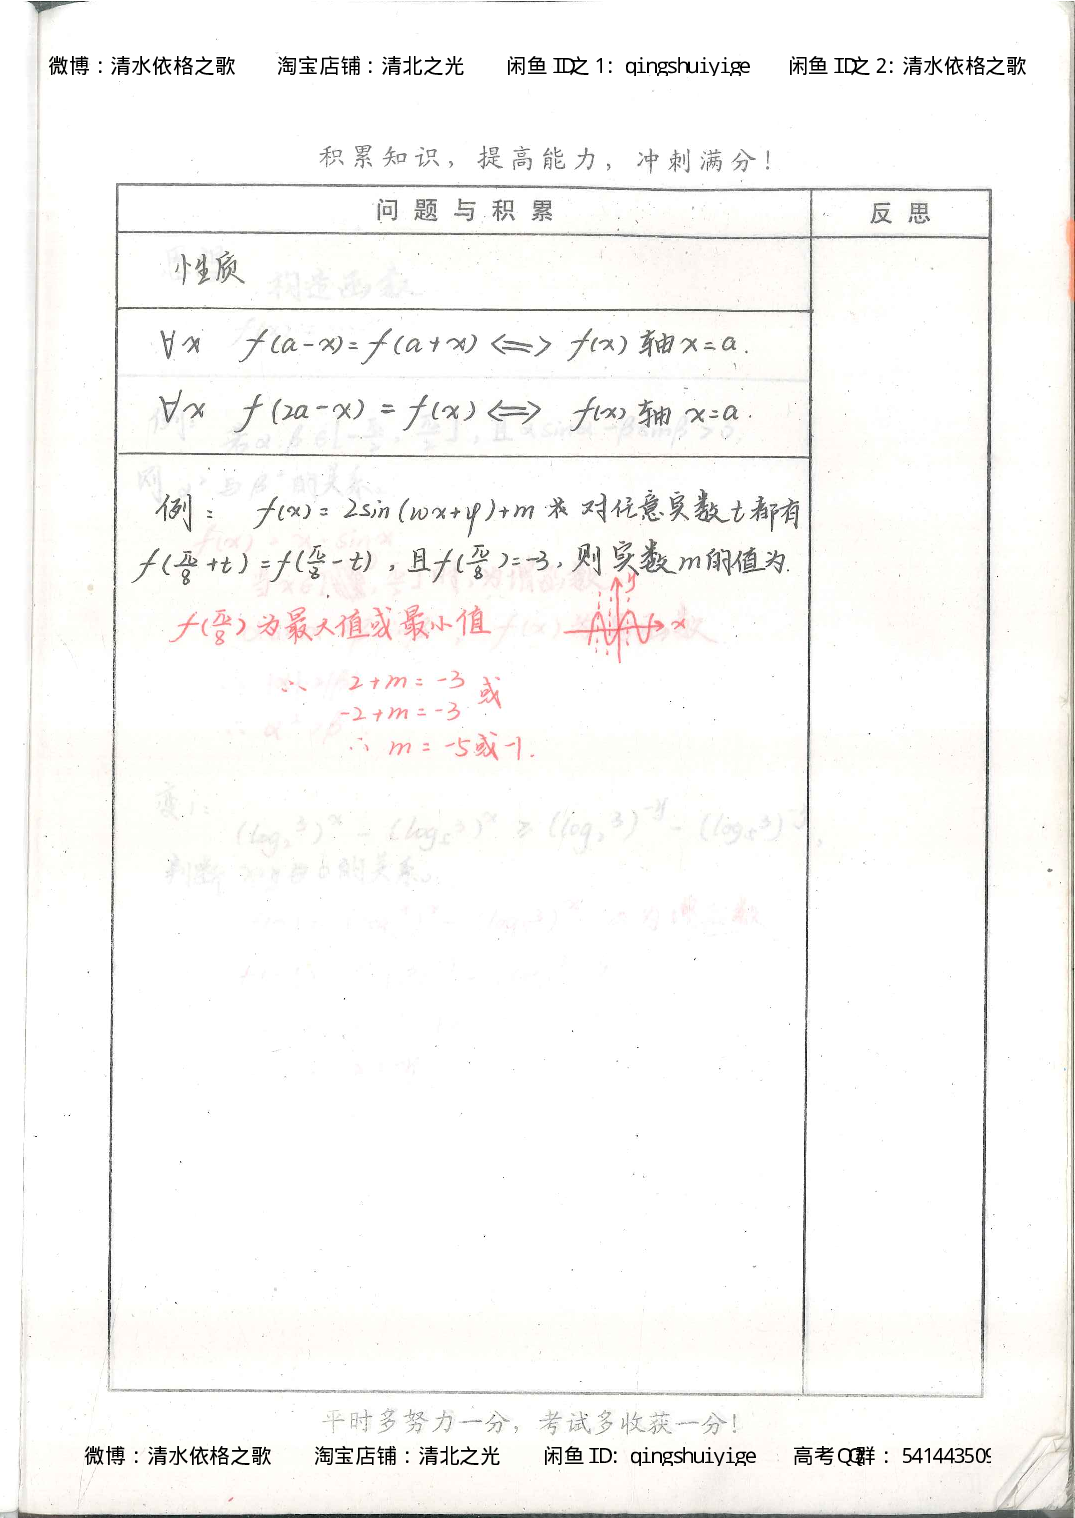 微博：清水依格之歌 淘宝店铺：清北之光 闲鱼 ID之 1: qingshuiyige 闲鱼 ID之 2: 清水依格之歌
积累知识，提高能力，冲刺满分！
问题与积累 反思
性质
∀x f(a-x)=f(a+x)⟺ f(x)轴x=a.
∀x f(2a-x)=f(x)⟺ f(x)轴 x=a.
例： f(x)=2sin(wx+φ)+m 对任意实数t都有
f(π/8+t)=f(π/8-t)，且f(π/8)=-3，则实数m的值为.
y
f(π/8)为最大值或最小值 x
∴ 2+m=-3 或
-2+m=-3
∴ m=-5或-1.
平时多努力一分，考试多收获一分！
微博：清水依格之歌 淘宝店铺：清北之光 闲鱼 ID: qingshuiyige 高考QQ群：541443509